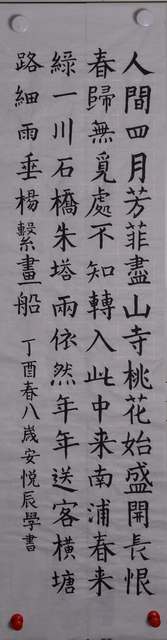 人間四月芳菲盡山寺桃花始盛開長恨
春歸無覓處不知轉入此中来南浦春来
綠一川石橋朱塔兩依然年年送客橫塘
路細雨垂楊繫畫船 丁酉春八歲安悅辰學書